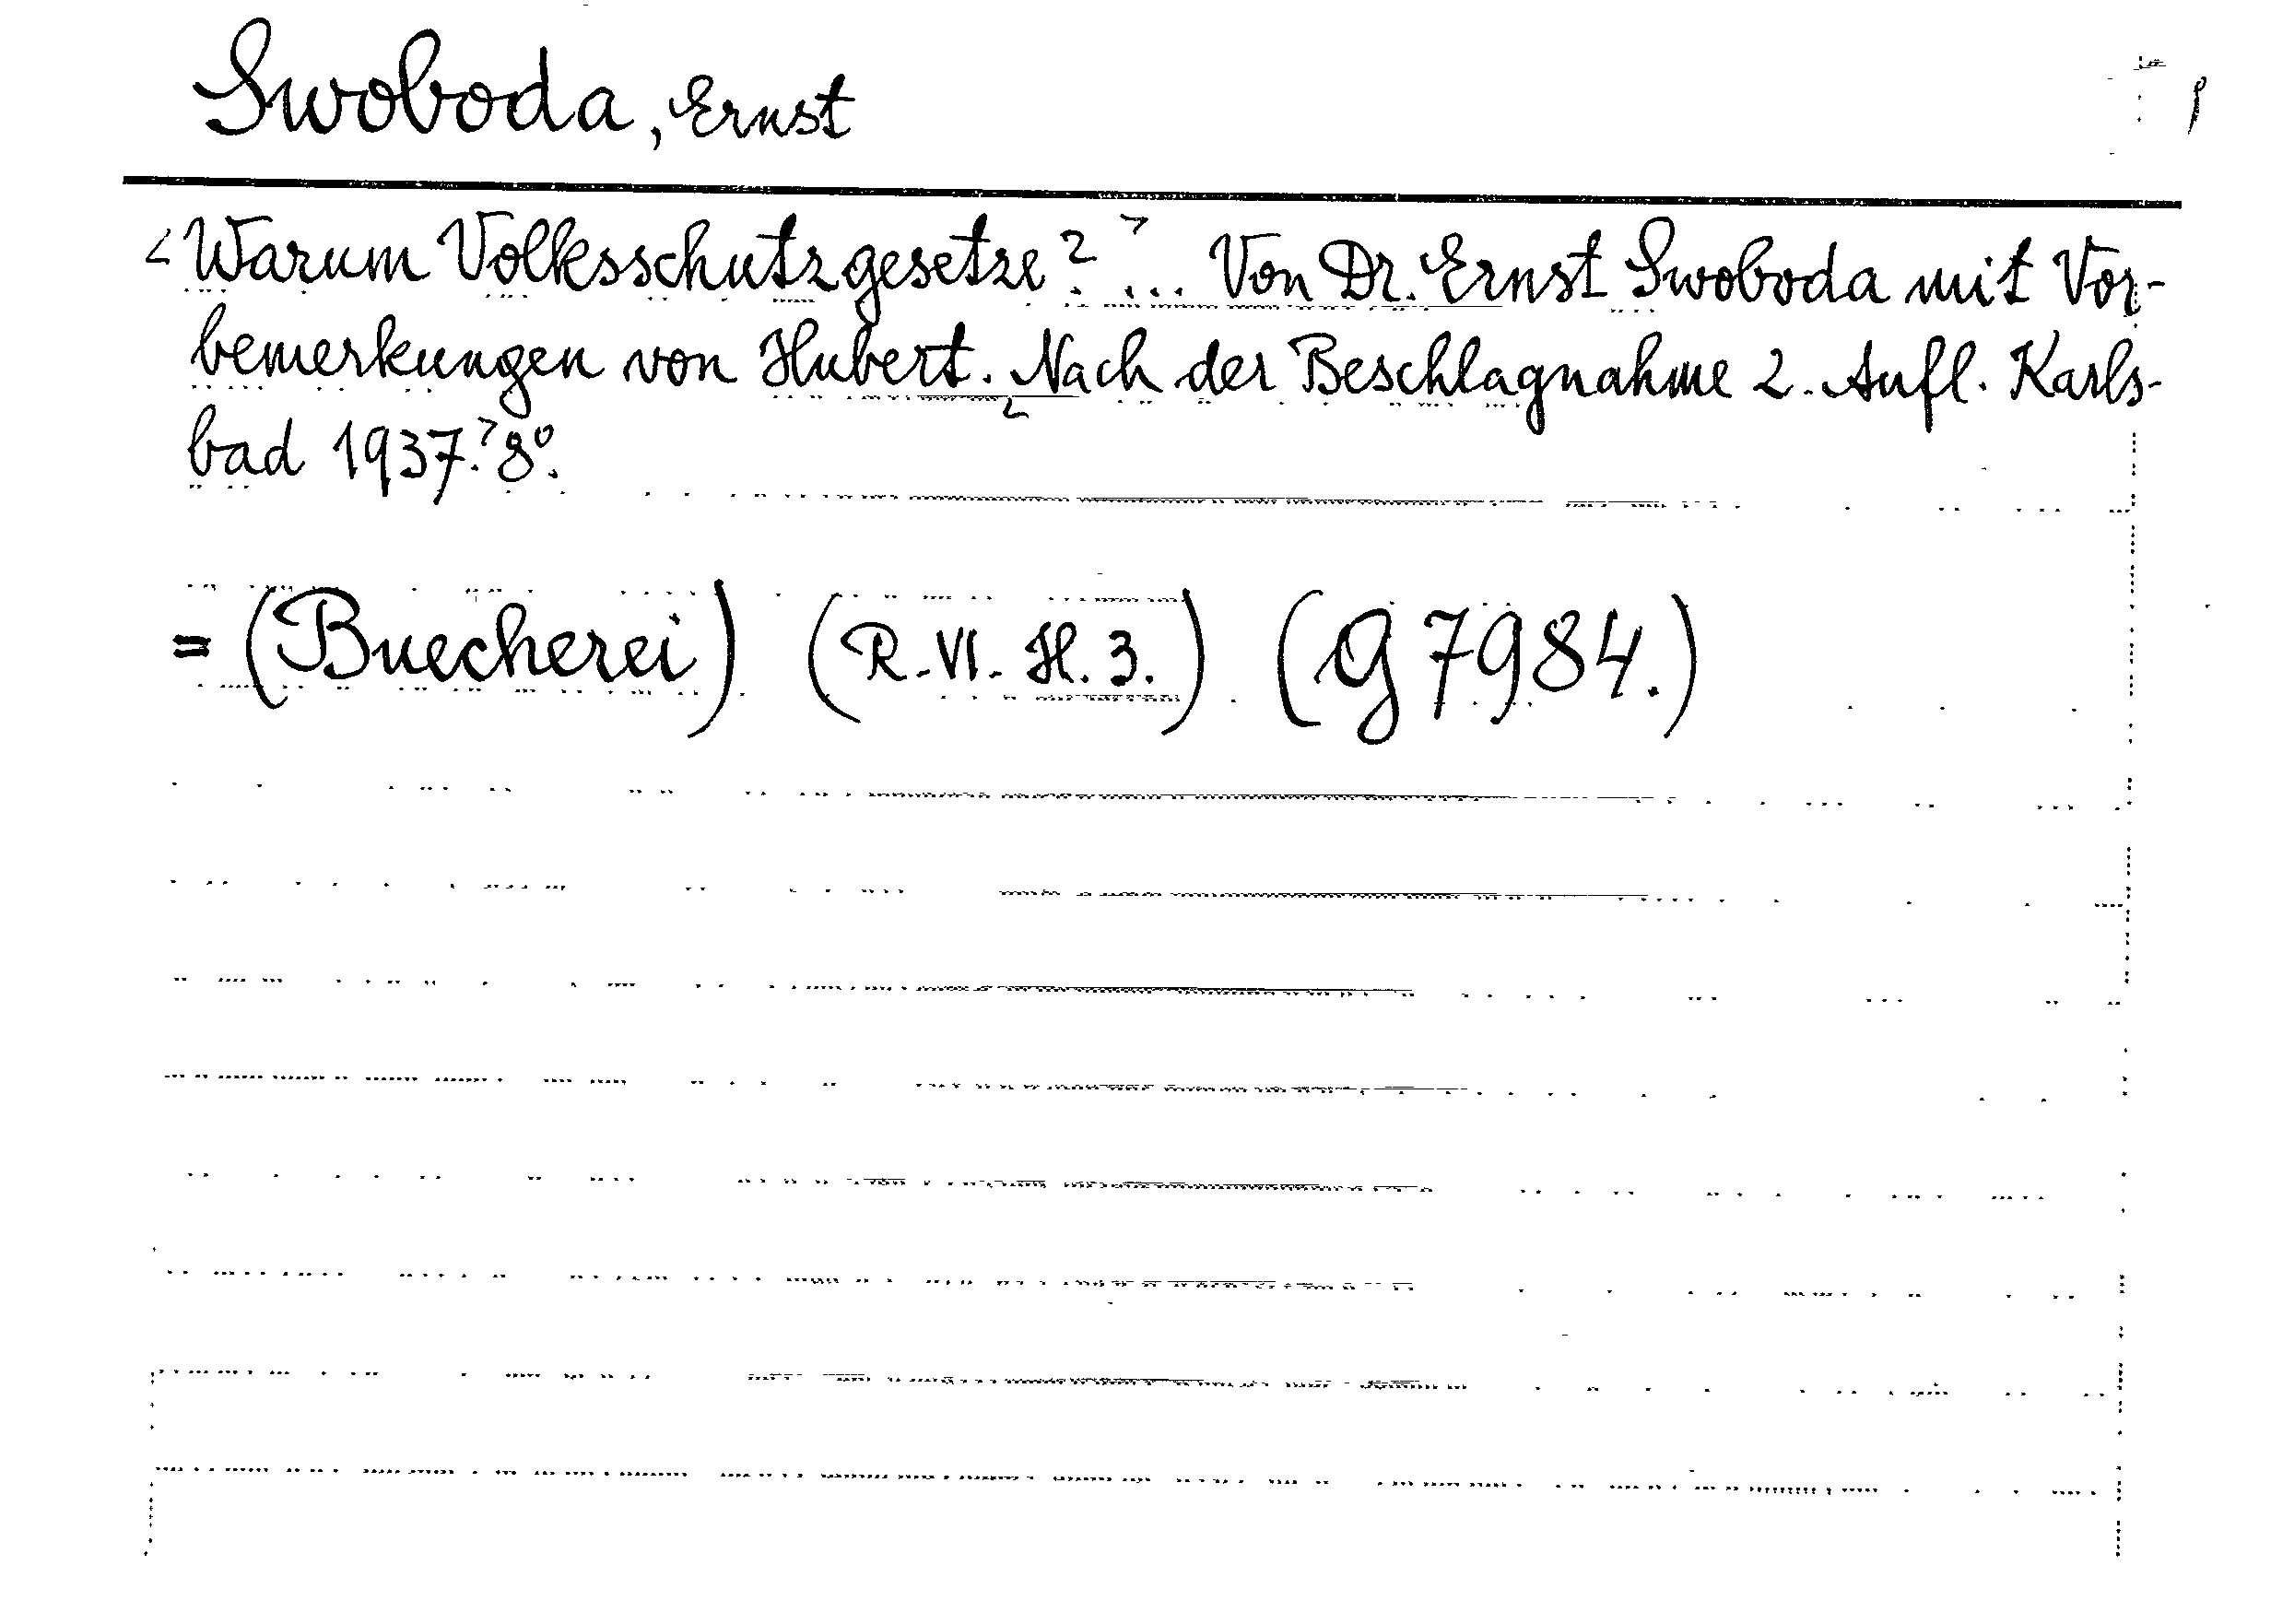 Swoboda, Ernst
<Warum Volksschutzgesetze?> ... Von Dr. Ernst Swoboda mit Vor-
bemerkungen von Hubert. <Nach der Beschlagnahme 2. Aufl. Karls-
bad 1937.> 8°.
= (Buecherei) (R. VI. H. 3.) (G 7984.)